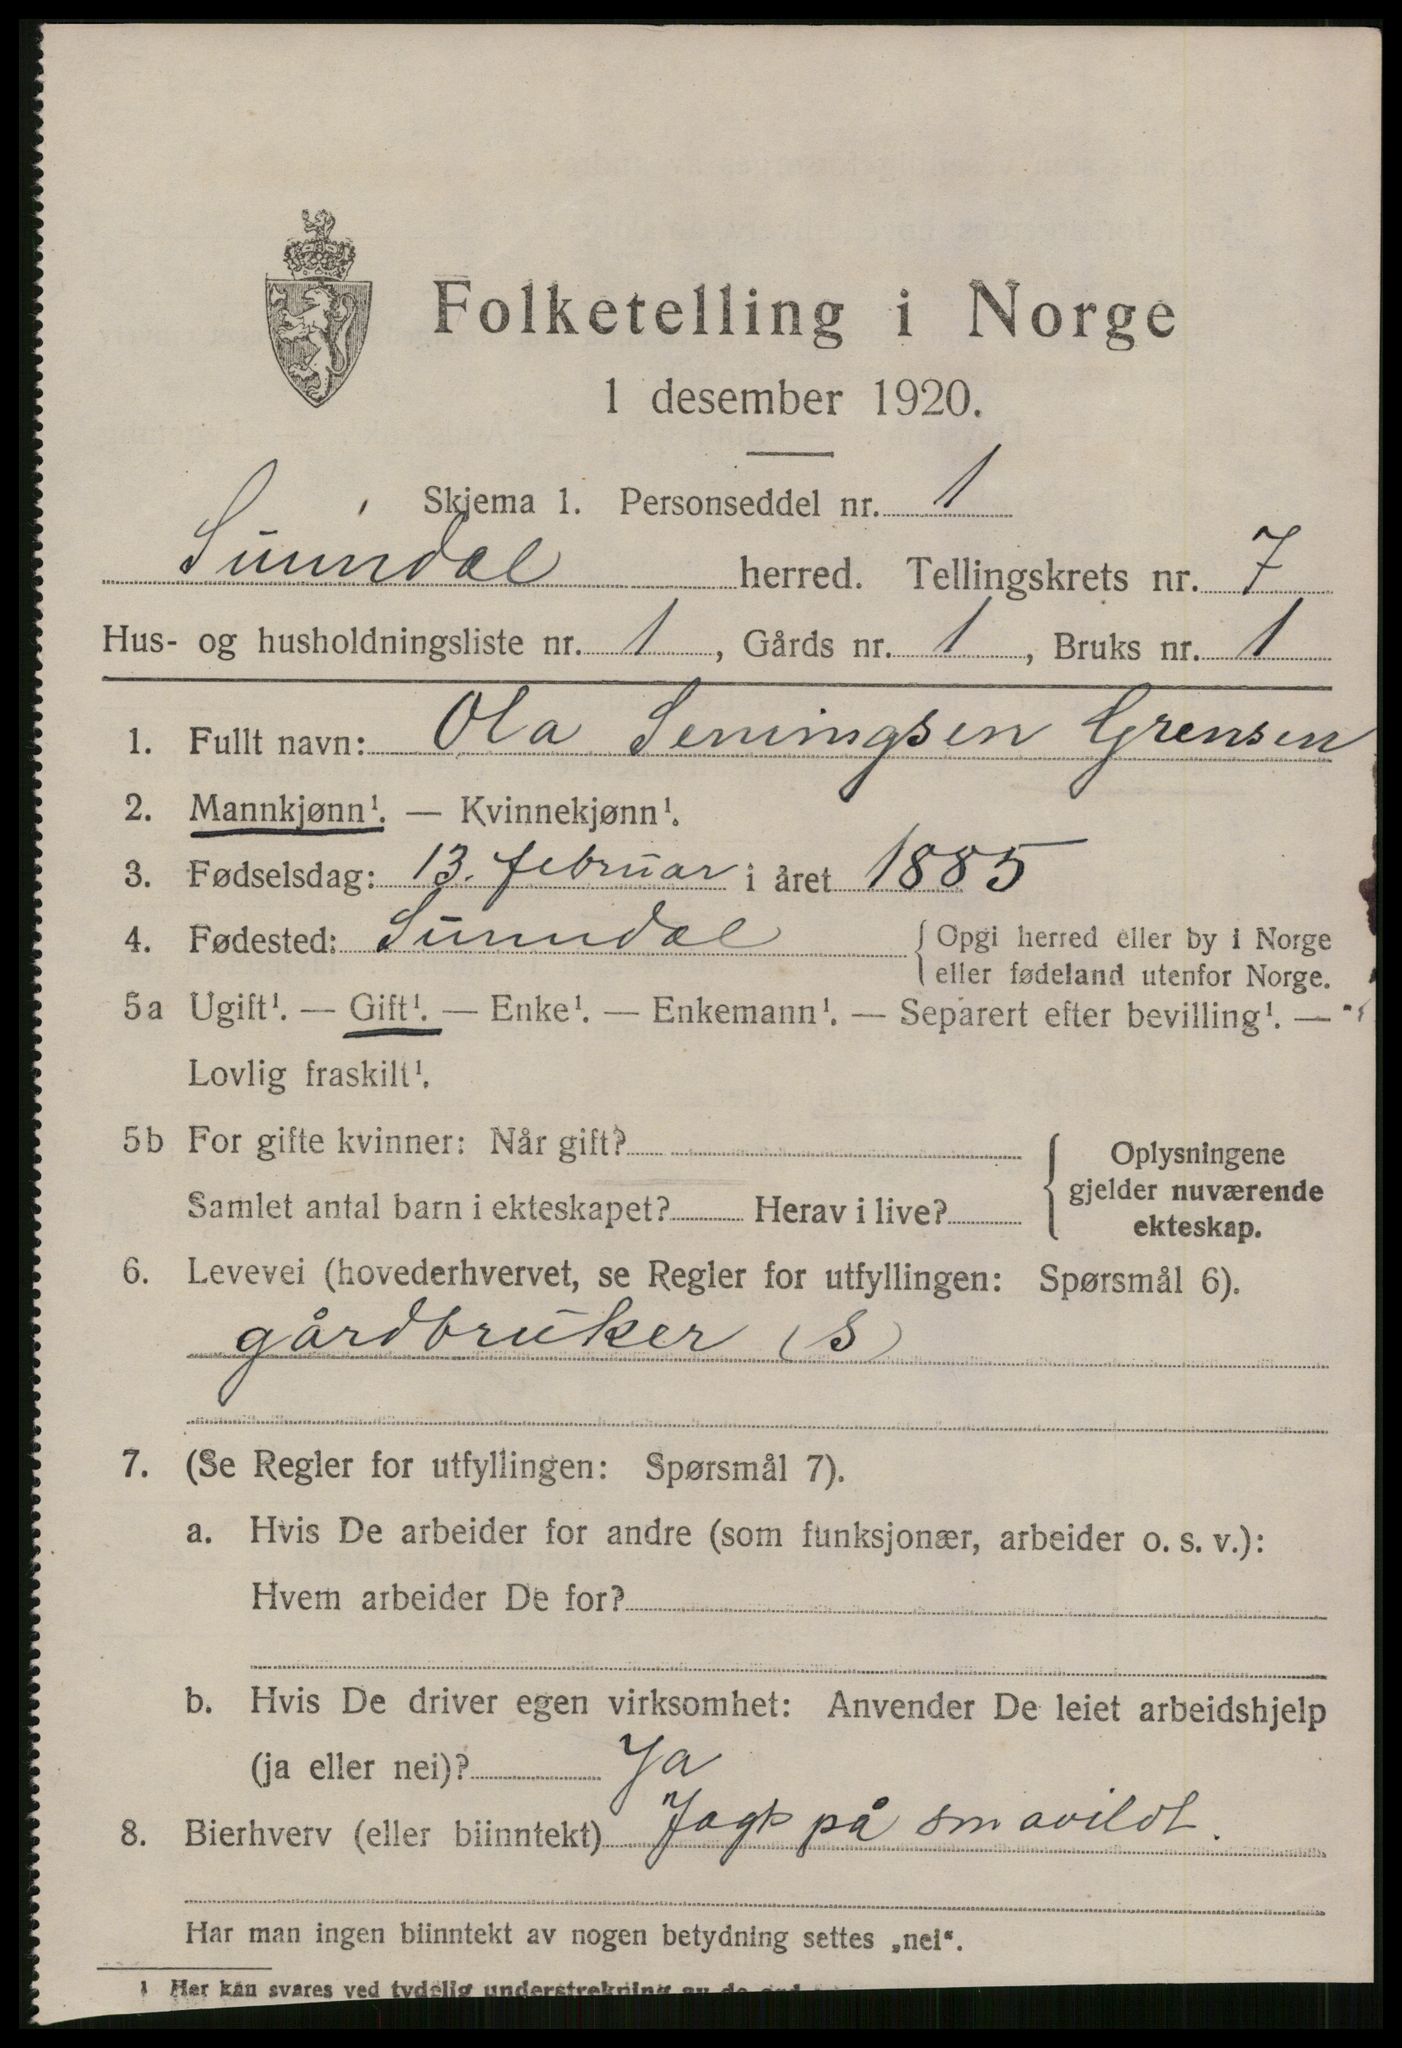 Folketelling i Norge
1 desember 1920.
Skjema 1. Personseddel nr. 1
Sunndal herred. Tellingskrets nr. 7
Hus- og husholdningsliste nr. 1, Gårds nr. 1, Bruks nr. 1
1. Fullt navn: Ola Grensen
2. Mannkjønn¹. — Kvinnekjønn¹.
3. Fødselsdag: 13. februar i året 1885
4. Fødested: Sunndal { Opgi herred eller by i Norge
eller fødeland utenfor Norge.
5a Ugift¹. — Gift¹. — Enke¹. — Enkemann¹. — Separert efter bevilling¹. —
Lovlig fraskilt¹.
5b For gifte kvinner: Når gift?
Samlet antal barn i ekteskapet? Herav i live?
{ Oplysningene
gjelder nuværende
ekteskap.
6. Levevei (hovederhvervet, se Regler for utfyllingen: Spørsmål 6).
gårdbruker (s)
7. (Se Regler for utfyllingen: Spørsmål 7).
a. Hvis De arbeider for andre (som funksjonær, arbeider o. s. v.):
Hvem arbeider De for?
b. Hvis De driver egen virksomhet: Anvender De leiet arbeidshjelp
(ja eller nei)? Ja
8. Bierhverv (eller biinntekt) Jagt på smavildt.
Har man ingen biinntekt av nogen betydning settes „nei“.
1 Her kan svares ved tydelig understrekning av de ord